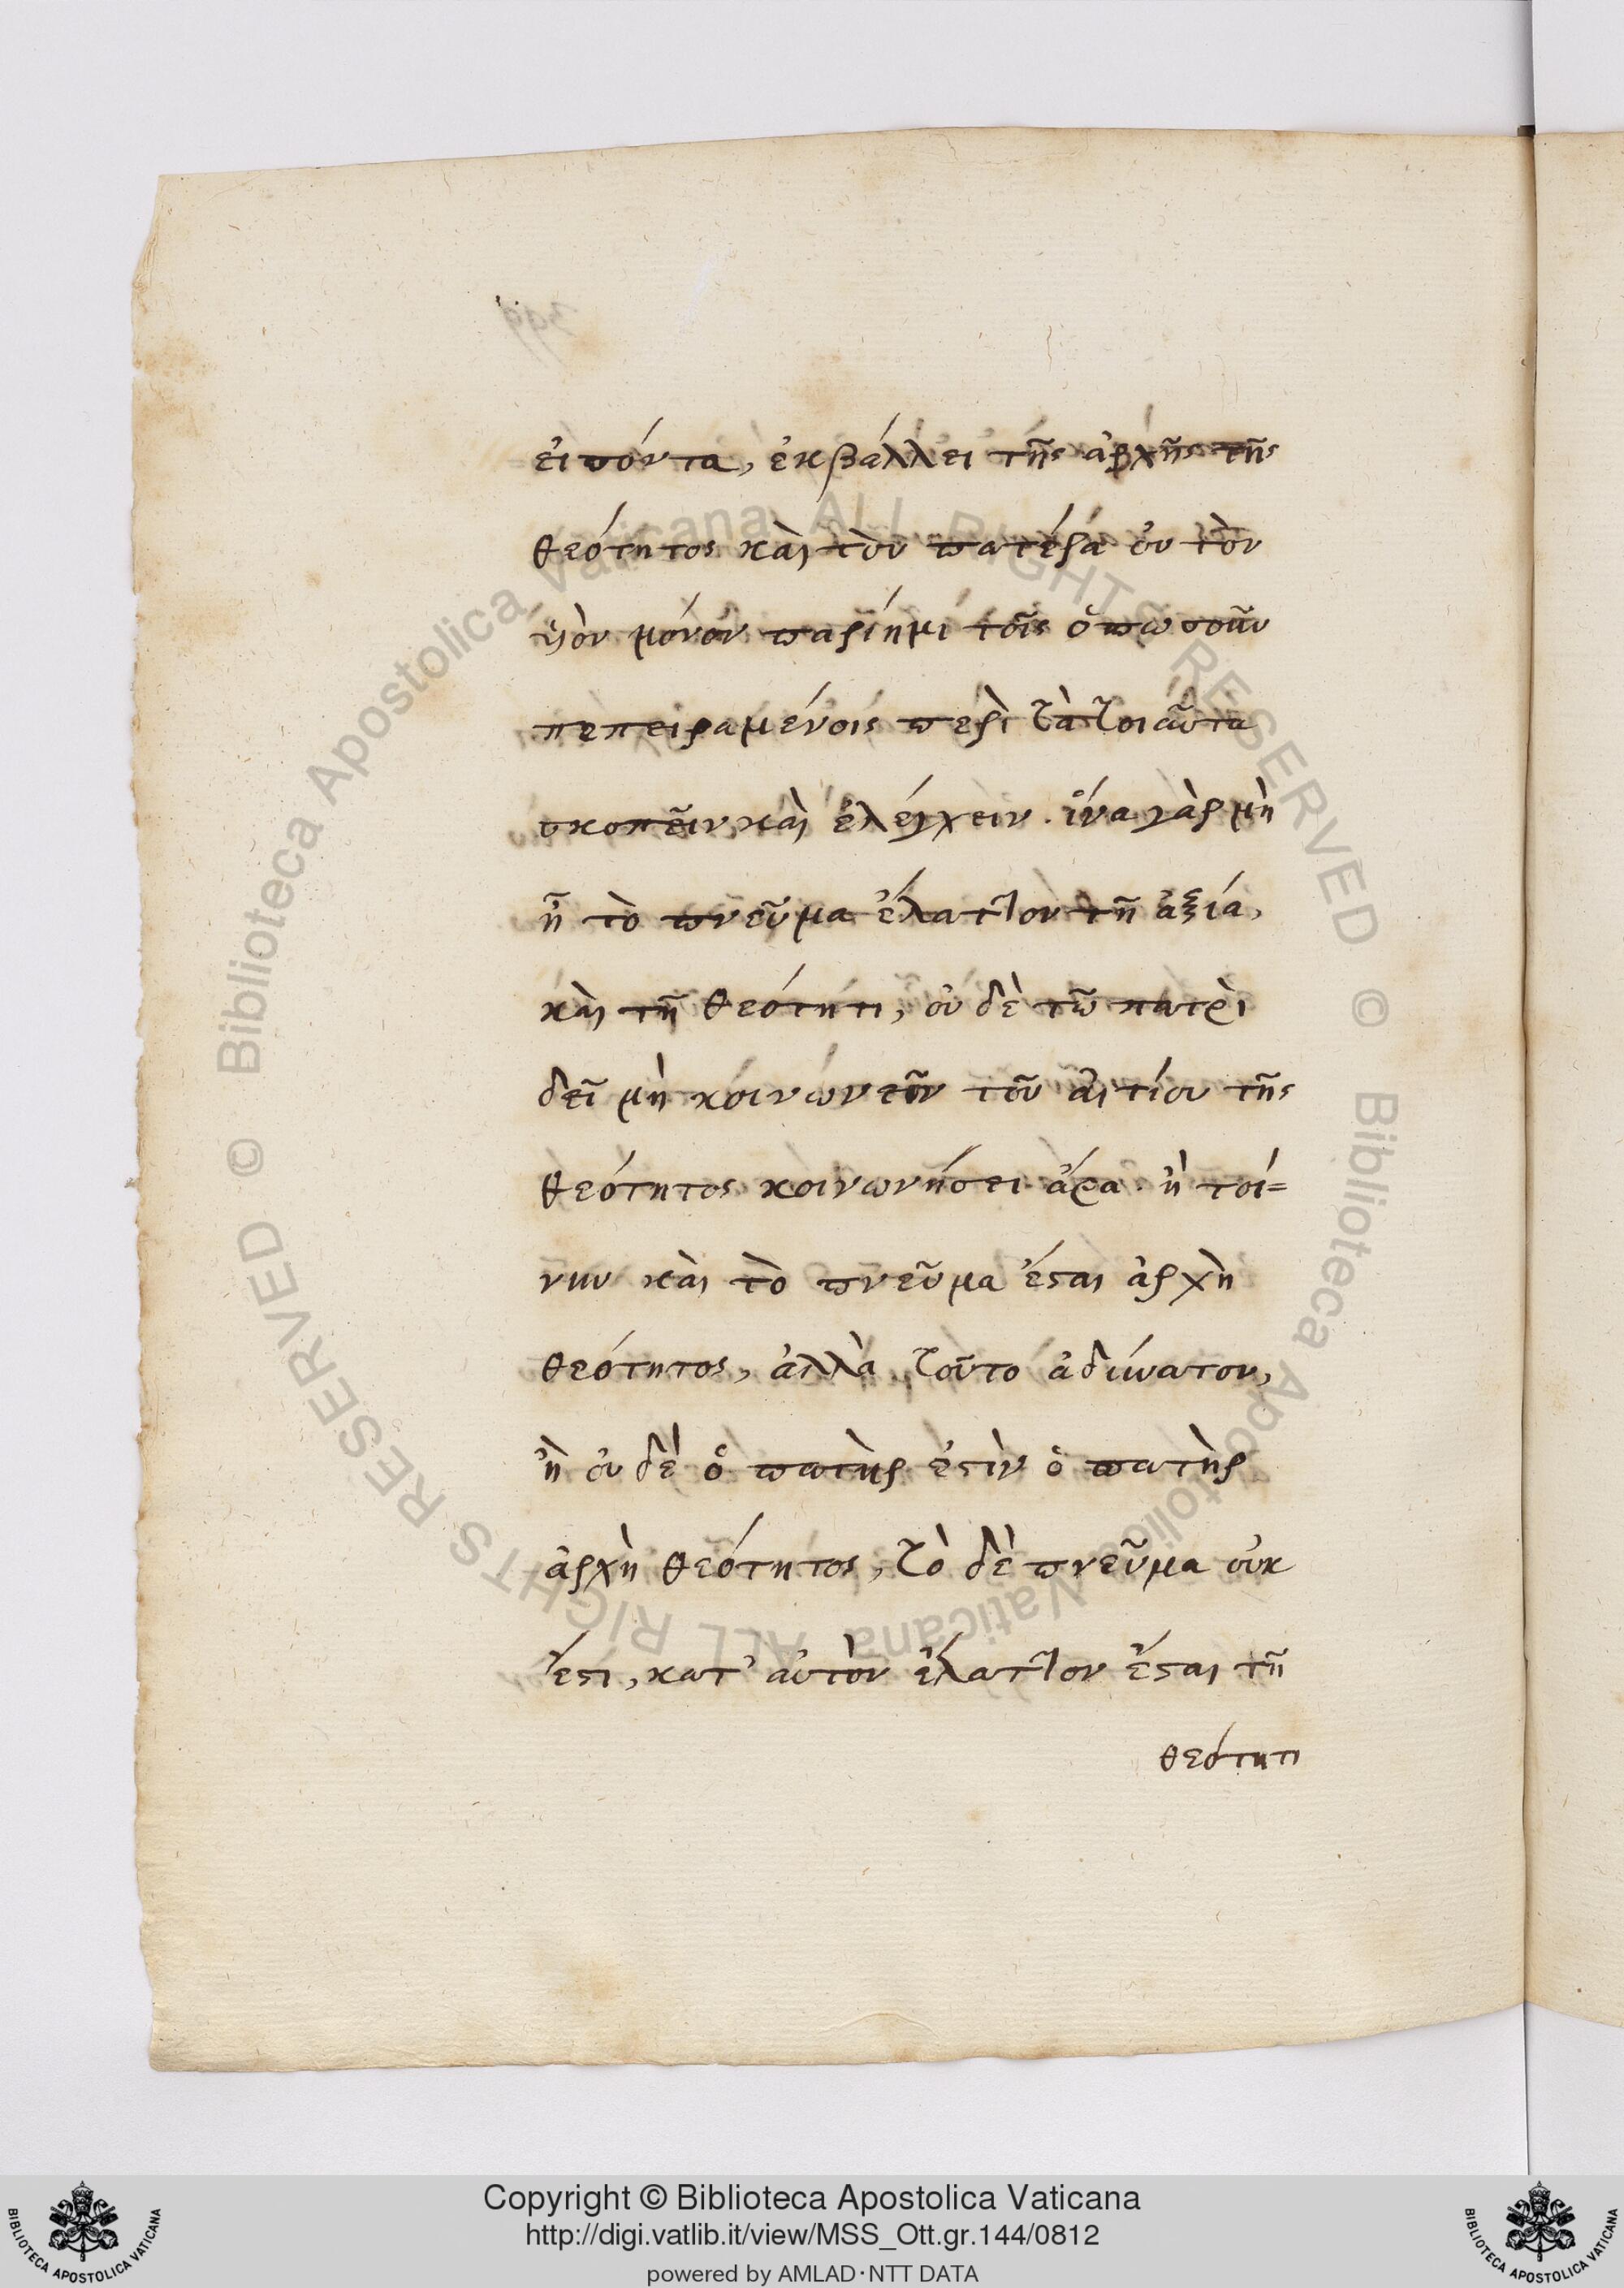 εἰπόντα, ἐκβάλλει τῆς ἀρχῆς τῆς
θεότητος καὶ τὸν πατέρα οὐ τὸν
ὑϊὸν μόνον παρίημι τοῖς ὁπωσοῦν
πεπειραμένοις περὶ τὰ τοιαῦτα
σκοπεῖν καὶ ἐλέγχειν. ἵνα γὰρ μὴ
ᾖ τὸ πνεῦμα ἔλαττον τῆ ἀξία,
καὶ τῆ θεότητι, οὐδὲ τῶ πατρὶ
δεῖ μὴ κοινωνεῖν τοῦ αἰτίου τῆς
θεότητος κοινωνήσει ἄρα. ἢ τοί=
νυν καὶ τὸ πνεῦμα ἔσται ἀρχὴ
θεότητος, ἀλλὰ τοῦτο ἀδύνατον,
ἢ οὐδὲ ὁ πατὴρ ἐστὶν ὁ πατὴρ
ἀρχὴ θεότητος, τὸ δὲ πνεῦμα οὐκ
ἔστι, κατ' αὐτὸν ἔλαττον ἔσται τῆ
θεότητι
Copyright © Biblioteca Apostolica Vaticana
http://digi.vatlib.it/view/MSS_Ott.gr.144/0812
powered by AMLAD·NTT DATA
BIBLIOTECA APOSTOLICA VATICANA
BIBLIOTECA APOSTOLICA VATICANA
© Biblioteca Apostolica Vaticana ALL RIGHTS RESERVED
© Biblioteca Apostolica Vaticana ALL RIGHTS RESERVED